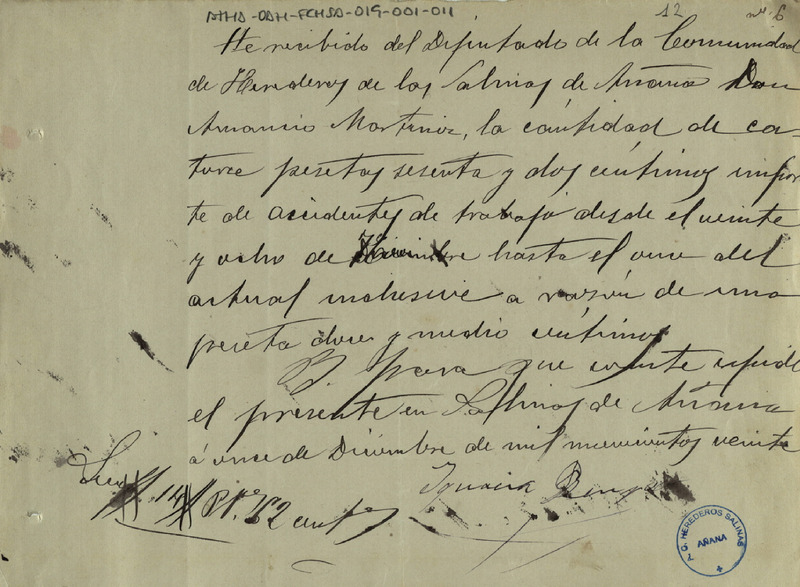 ATHA-DAH-FCHSA-019-001-011
12
nº 6
He recibido del Diputado de la Comunidad
de Herederos de las Salinas de Añana Don
Amancio Martinez, la cántidad de ca-
torce pesetas sesenta y dos céntimos impor
te de accidentes de trabajo desde el veinte
y ocho de hasta el once del
actual inclusive a razón de una
peseta doce y medio céntimos
Y para que conste espido
el presente en Salinas de Añana
á once de Diciembre de mil novecientos veinte
Ignacio
Son 14 Pts 62 cents
C. G. HEREDEROS SALINAS
AÑANA